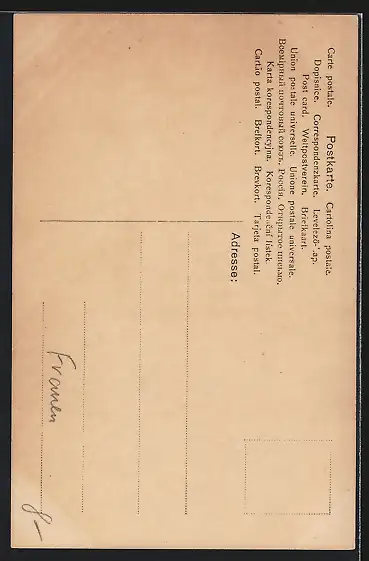 Carte postale. Postkarte. Cartolina postale.
Dopisnice. Correspondenzkarte. Levelező-Lap.
Post card. Weltpostverein. Briefkaart.
Union postale universelle. Unione postale universale.
Всемірный почтовый союзъ. Россія. Открытое письмо.
Karta korespondencyjna. Korespondenční lístek.
Cartão postal. Brefkort. Brevkort. Tarjeta postal.
Adresse:
Frauen
8–